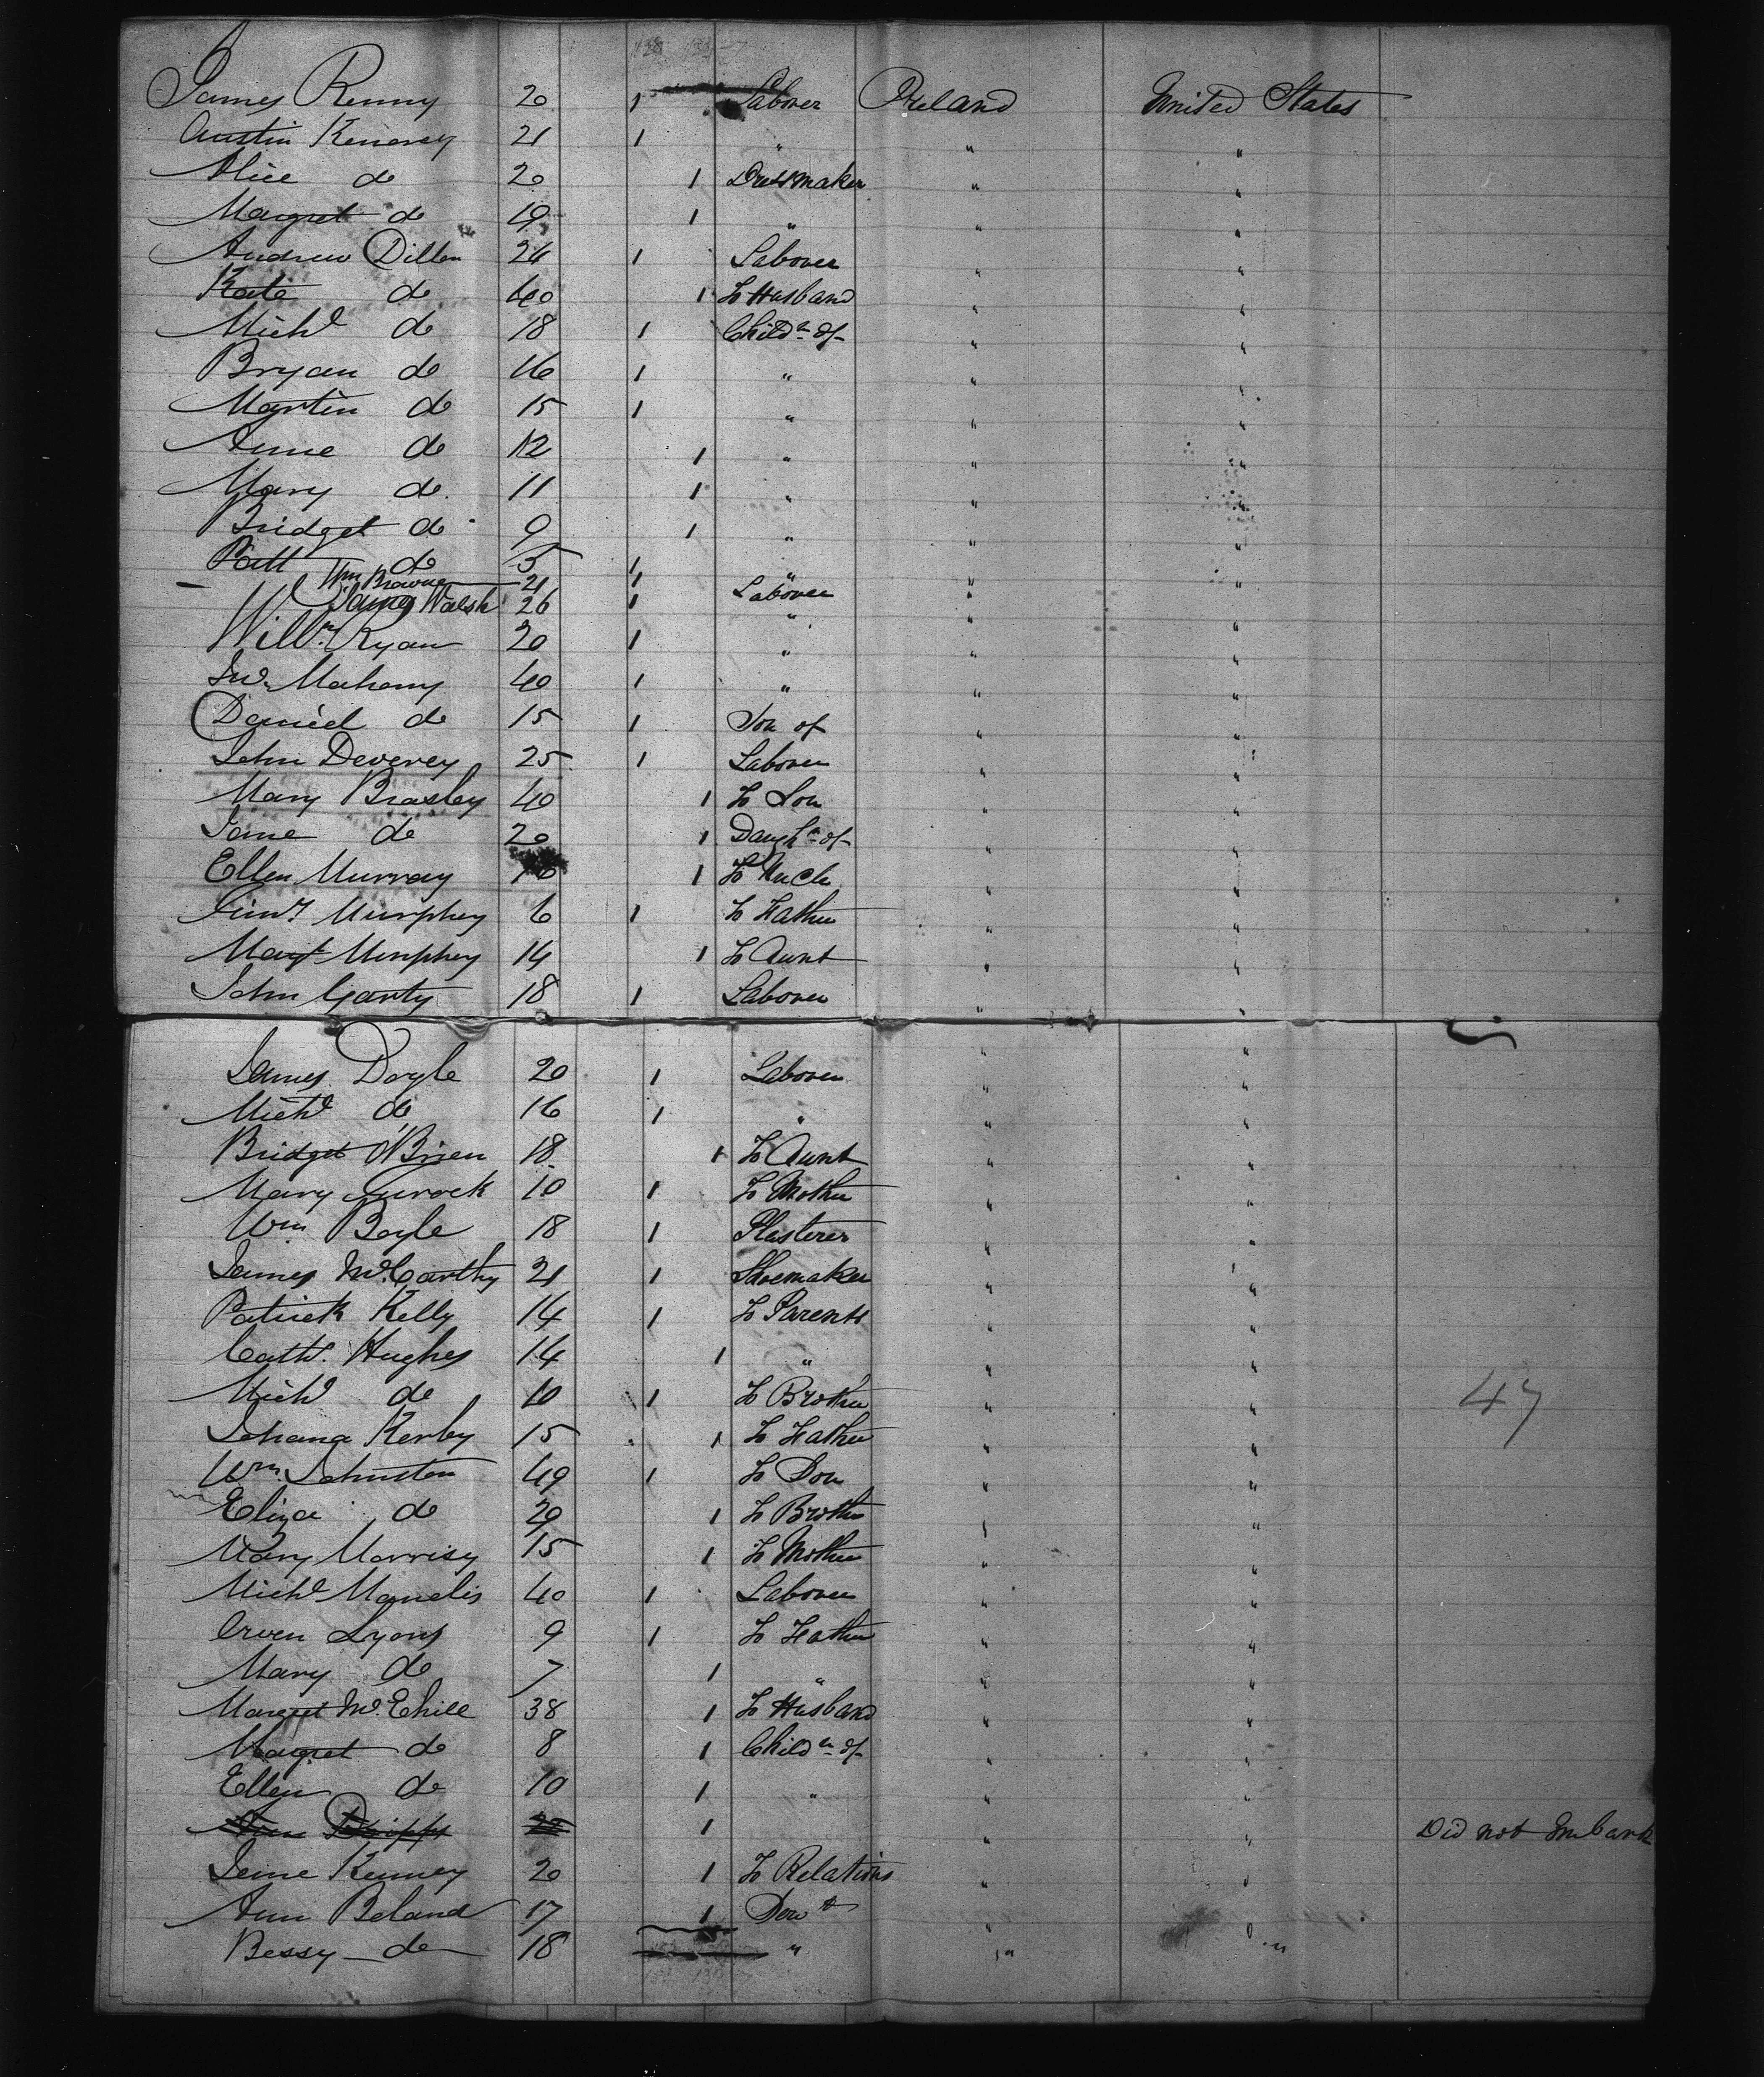 James Renny 20 1 Laborer Ireland United States
Austin Kenersy 21 1 " " "
Alice do 20 1 Dressmaker " "
Margret do 19 1 " " "
Andrew Dillon 24 1 Laborer " "
Kate do 40 1 To Husband " "
Michl do 18 1 Childn of " "
Bryan do 16 1 " " "
Martin do 15 1 " " "
Anne do 12 1 " " "
Mary do 11 1 " " "
Bridget do 9 1 " " "
Patt do 5 1 " " "
Wm Browne 21 1 Laborer " "
James Walsh 26 1 " " "
Willm Ryan 20 1 " " "
Jno. Mahony 40 1 " " "
Daniel do 15 1 Son of " "
John Deverey 25 1 Laborer " "
Mary Brasley 40 1 To Son " "
Jane do 20 1 Daughr of " "
Ellen Murray 1 To Uncle " "
Timy Murphey 6 1 To Father " "
Mart Murphey 14 1 To Aunt " "
John Garty 18 1 Laborer " "
James Doyle 20 1 Laborer " "
Michl do 16 1 " " "
Bridget O'Brien 18 1 To Aunt " "
Mary 10 1 To Mother " "
Wm Boyle 18 1 Plasterer " "
James McCarthy 21 1 Shoemaker " "
Patrick Kelly 14 1 To Parents " "
Cath. Hughes 14 1 " " "
Michl do 10 1 To Brother " " 47
Johana Kerby 15 1 To Father " "
Wm. Johnston 49 1 To Son " "
Eliza do 20 1 To Brother " "
Mary Morrisy 15 1 To Mother " "
Michl Manelis 40 1 Laborer " "
Owen Lyons 9 1 To Father " "
Mary do 7 1 " " "
Margret McEhill 38 1 To Husband " "
Margret do 8 1 Childn of " "
Ellen do 10 1 " " "
Ann Dripps 22 1 " " Did not Imbark
Jane Kenney 20 1 To Relations " "
Ann Beland 17 1 " "
Bessy do 18 " " "